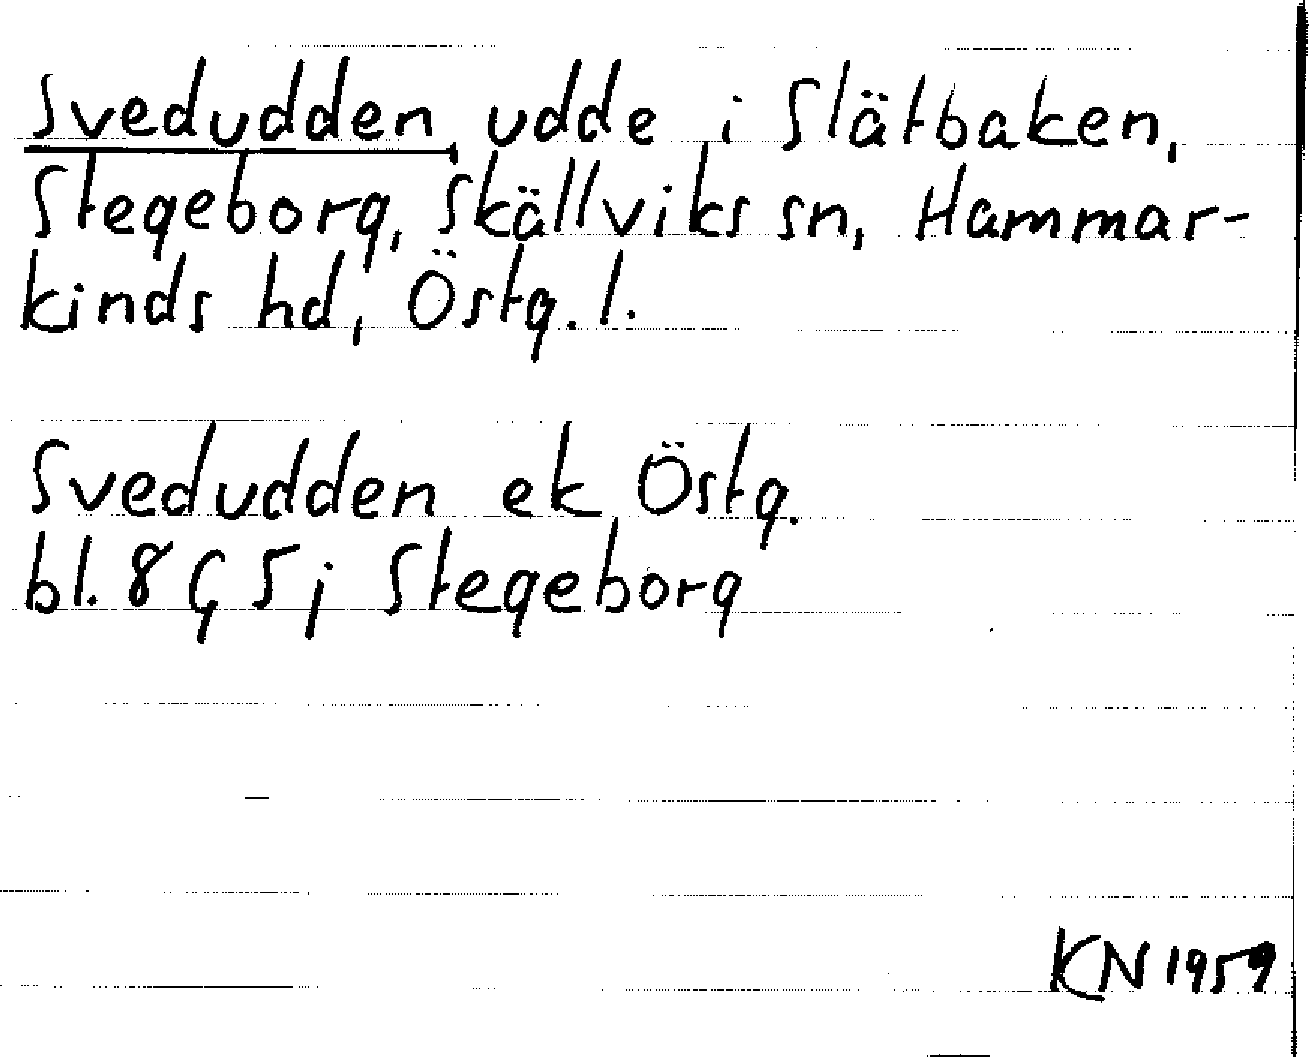 Svedudden, udde i Slätbaken,
Stegeborg, Skällviks sn, Hammar-
kinds hd, Östg. l.
Svedudden ek Östg.
bl. 8 G 5 j Stegeborg
KN 1959